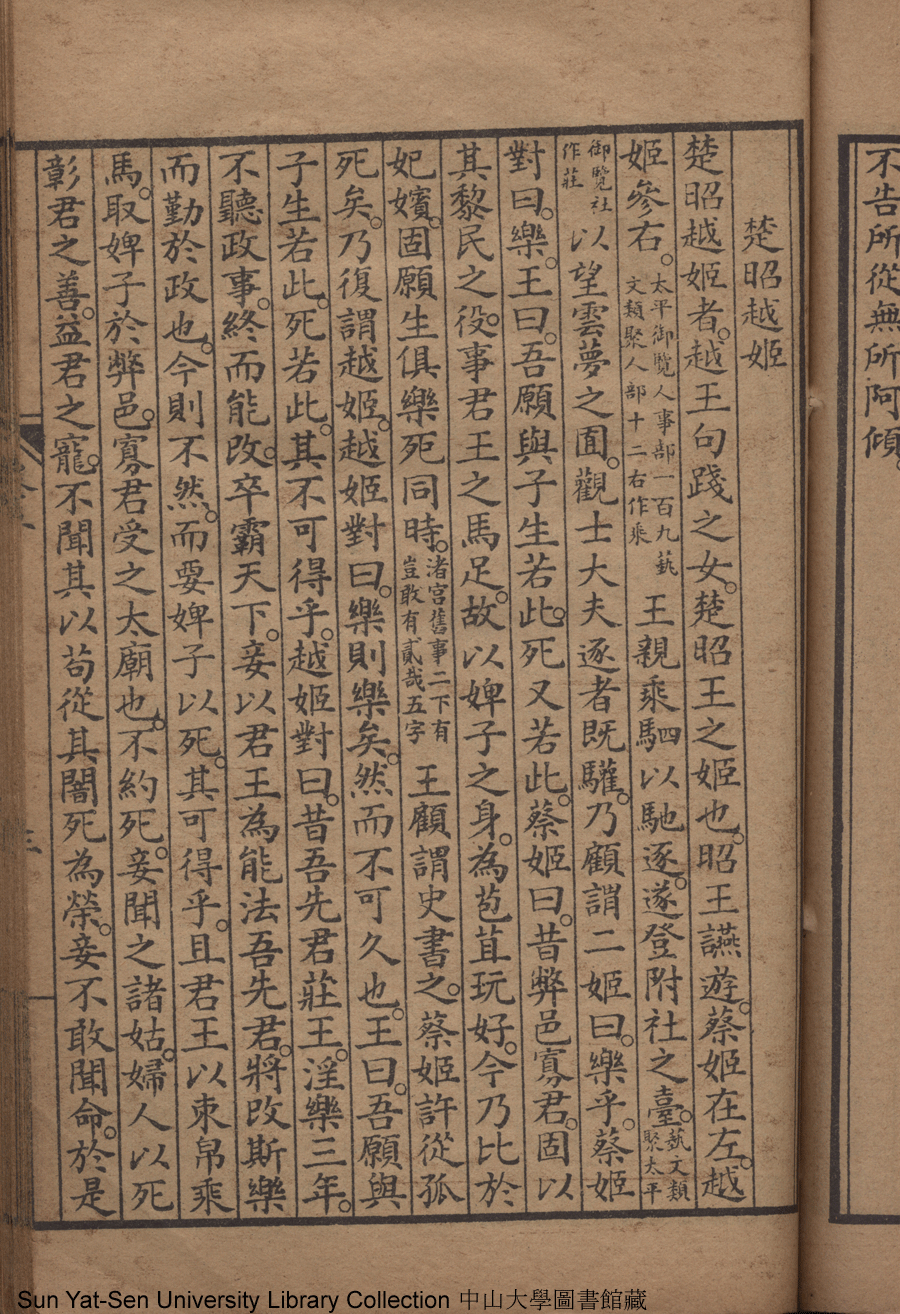 不告所從無所阿傾。
楚昭越姬
楚昭越姬者。越王句踐之女。楚昭王之姬也。昭王讌遊。蔡姬在左。越
姬參右。太平御覽人事部一百九藝文類聚人部十二右作乘王親乘駟以馳逐。遂登附社之臺。藝文類聚太平
御覽社作莊以望雲夢之囿。觀士大夫逐者既驩。乃顧謂二姬曰。樂乎。蔡姬
對曰。樂。王曰。吾願與子生若此。死又若此。蔡姬曰。昔弊邑寡君。固以
其黎民之役。事君王之馬足。故以婢子之身。為苞苴玩好。今乃比於
妃嬪。固願生俱樂死同時。渚宮舊事二下有豈敢有貳哉五字王顧謂史書之。蔡姬許從孤
死矣。乃復謂越姬。越姬對曰。樂則樂矣。然而不可久也。王曰。吾願與
子生若此。死若此。其不可得乎。越姬對曰。昔吾先君莊王。淫樂三年。
不聽政事。終而能改。卒霸天下。妾以君王為能法吾先君。將改斯樂
而勤於政也。今則不然。而要婢子以死。其可得乎。且君王以束帛乘
馬。取婢子於弊邑。寡君受之太廟也。不約死。妾聞之諸姑。婦人以死
彰君之善。益君之寵。不聞其以苟從其闇死為榮。妾不敢聞命。於是
三
Sun Yat-Sen University Library Collection 中山大學圖書館藏